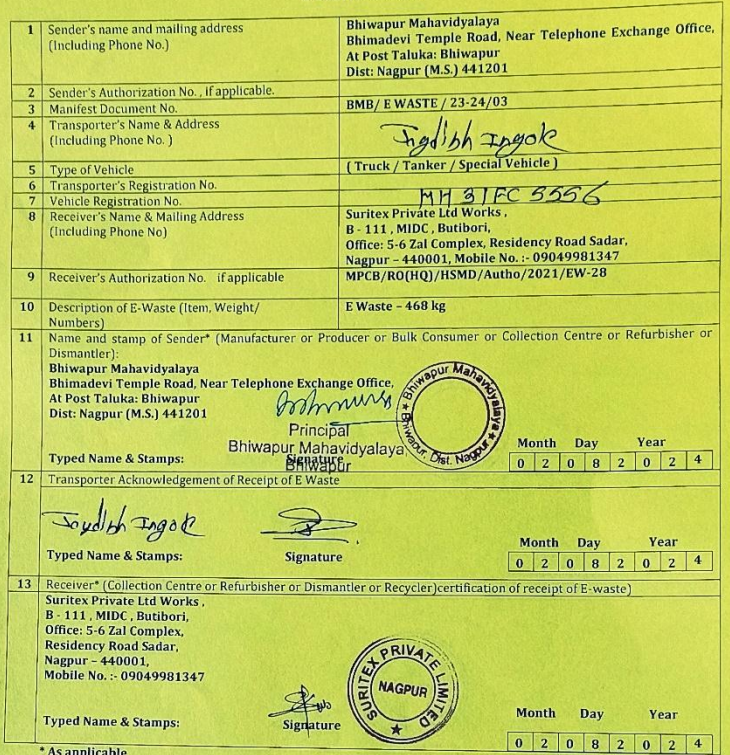 1 Sender's name and mailing address (Including Phone No.)
Bhiwapur Mahavidyalaya
Bhimadevi Temple Road, Near Telephone Exchange Office,
At Post Taluka: Bhiwapur
Dist: Nagpur (M.S.) 441201
2 Sender's Authorization No. , if applicable.
3 Manifest Document No. BMB/ E WASTE / 23-24/03
4 Transporter's Name & Address
(Including Phone No. )
5 Type of Vehicle ( Truck / Tanker / Special Vehicle )
6 Transporter's Registration No.
7 Vehicle Registration No. MH 31 FC 5556
8 Receiver's Name & Mailing Address
(Including Phone No)
Suritex Private Ltd Works ,
B - 111 , MIDC , Butibori,
Office: 5-6 Zal Complex, Residency Road Sadar,
Nagpur – 440001, Mobile No. :- 09049981347
9 Receiver's Authorization No. if applicable MPCB/RO(HQ)/HSMD/Autho/2021/EW-28
10 Description of E-Waste (Item, Weight/
Numbers)
E Waste – 468 kg
11 Name and stamp of Sender* (Manufacturer or Producer or Bulk Consumer or Collection Centre or Refurbisher or
Dismantler):
Bhiwapur Mahavidyalaya
Bhimadevi Temple Road, Near Telephone Exchange Office,
At Post Taluka: Bhiwapur
Dist: Nagpur (M.S.) 441201
Principal
Bhiwapur Mahavidyalaya
Bhiwapur
★ Bhiwapur Mahavidyalaya ★ Bhiwapur, Dist. Nagpur
Typed Name & Stamps: Signature
Month Day Year
0 2 0 8 2 0 2 4
12 Transporter Acknowledgement of Receipt of E Waste
Typed Name & Stamps: Signature
Month Day Year
0 2 0 8 2 0 2 4
13 Receiver* (Collection Centre or Refurbisher or Dismantler or Recycler)certification of receipt of E-waste)
Suritex Private Ltd Works ,
B - 111 , MIDC , Butibori,
Office: 5-6 Zal Complex,
Residency Road Sadar,
Nagpur – 440001,
Mobile No. :- 09049981347
SURITEX PRIVATE LIMITED ★
NAGPUR
Typed Name & Stamps: Signature
Month Day Year
0 2 0 8 2 0 2 4
* As applicable